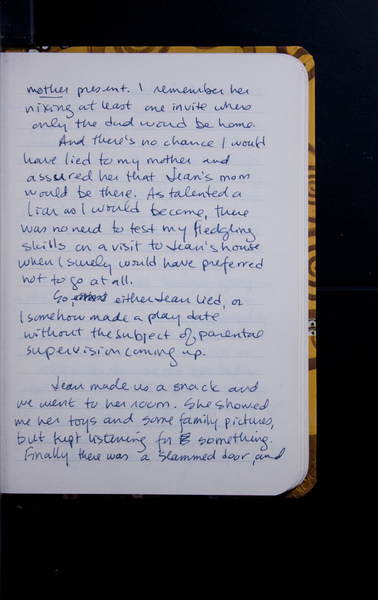 mother present. I remember her
nixing at least one invite where
only the dad would be home.
And there's no chance I would
have lied to my mother and
assured her that Jean's mom
would be there. As talented a
liar as I would become, there
was no need to test my fledgling
skills on a visit to Jean's house
when I surely would have preferred
not to go at all.
So, either Jean lied, or
I somehow made a play date
without the subject of parental
supervision coming up.
Jean made us a snack and
we went to her room. She showed
me her toys and some family pictures,
but kept listening for something.
Finally there was a slammed door, and